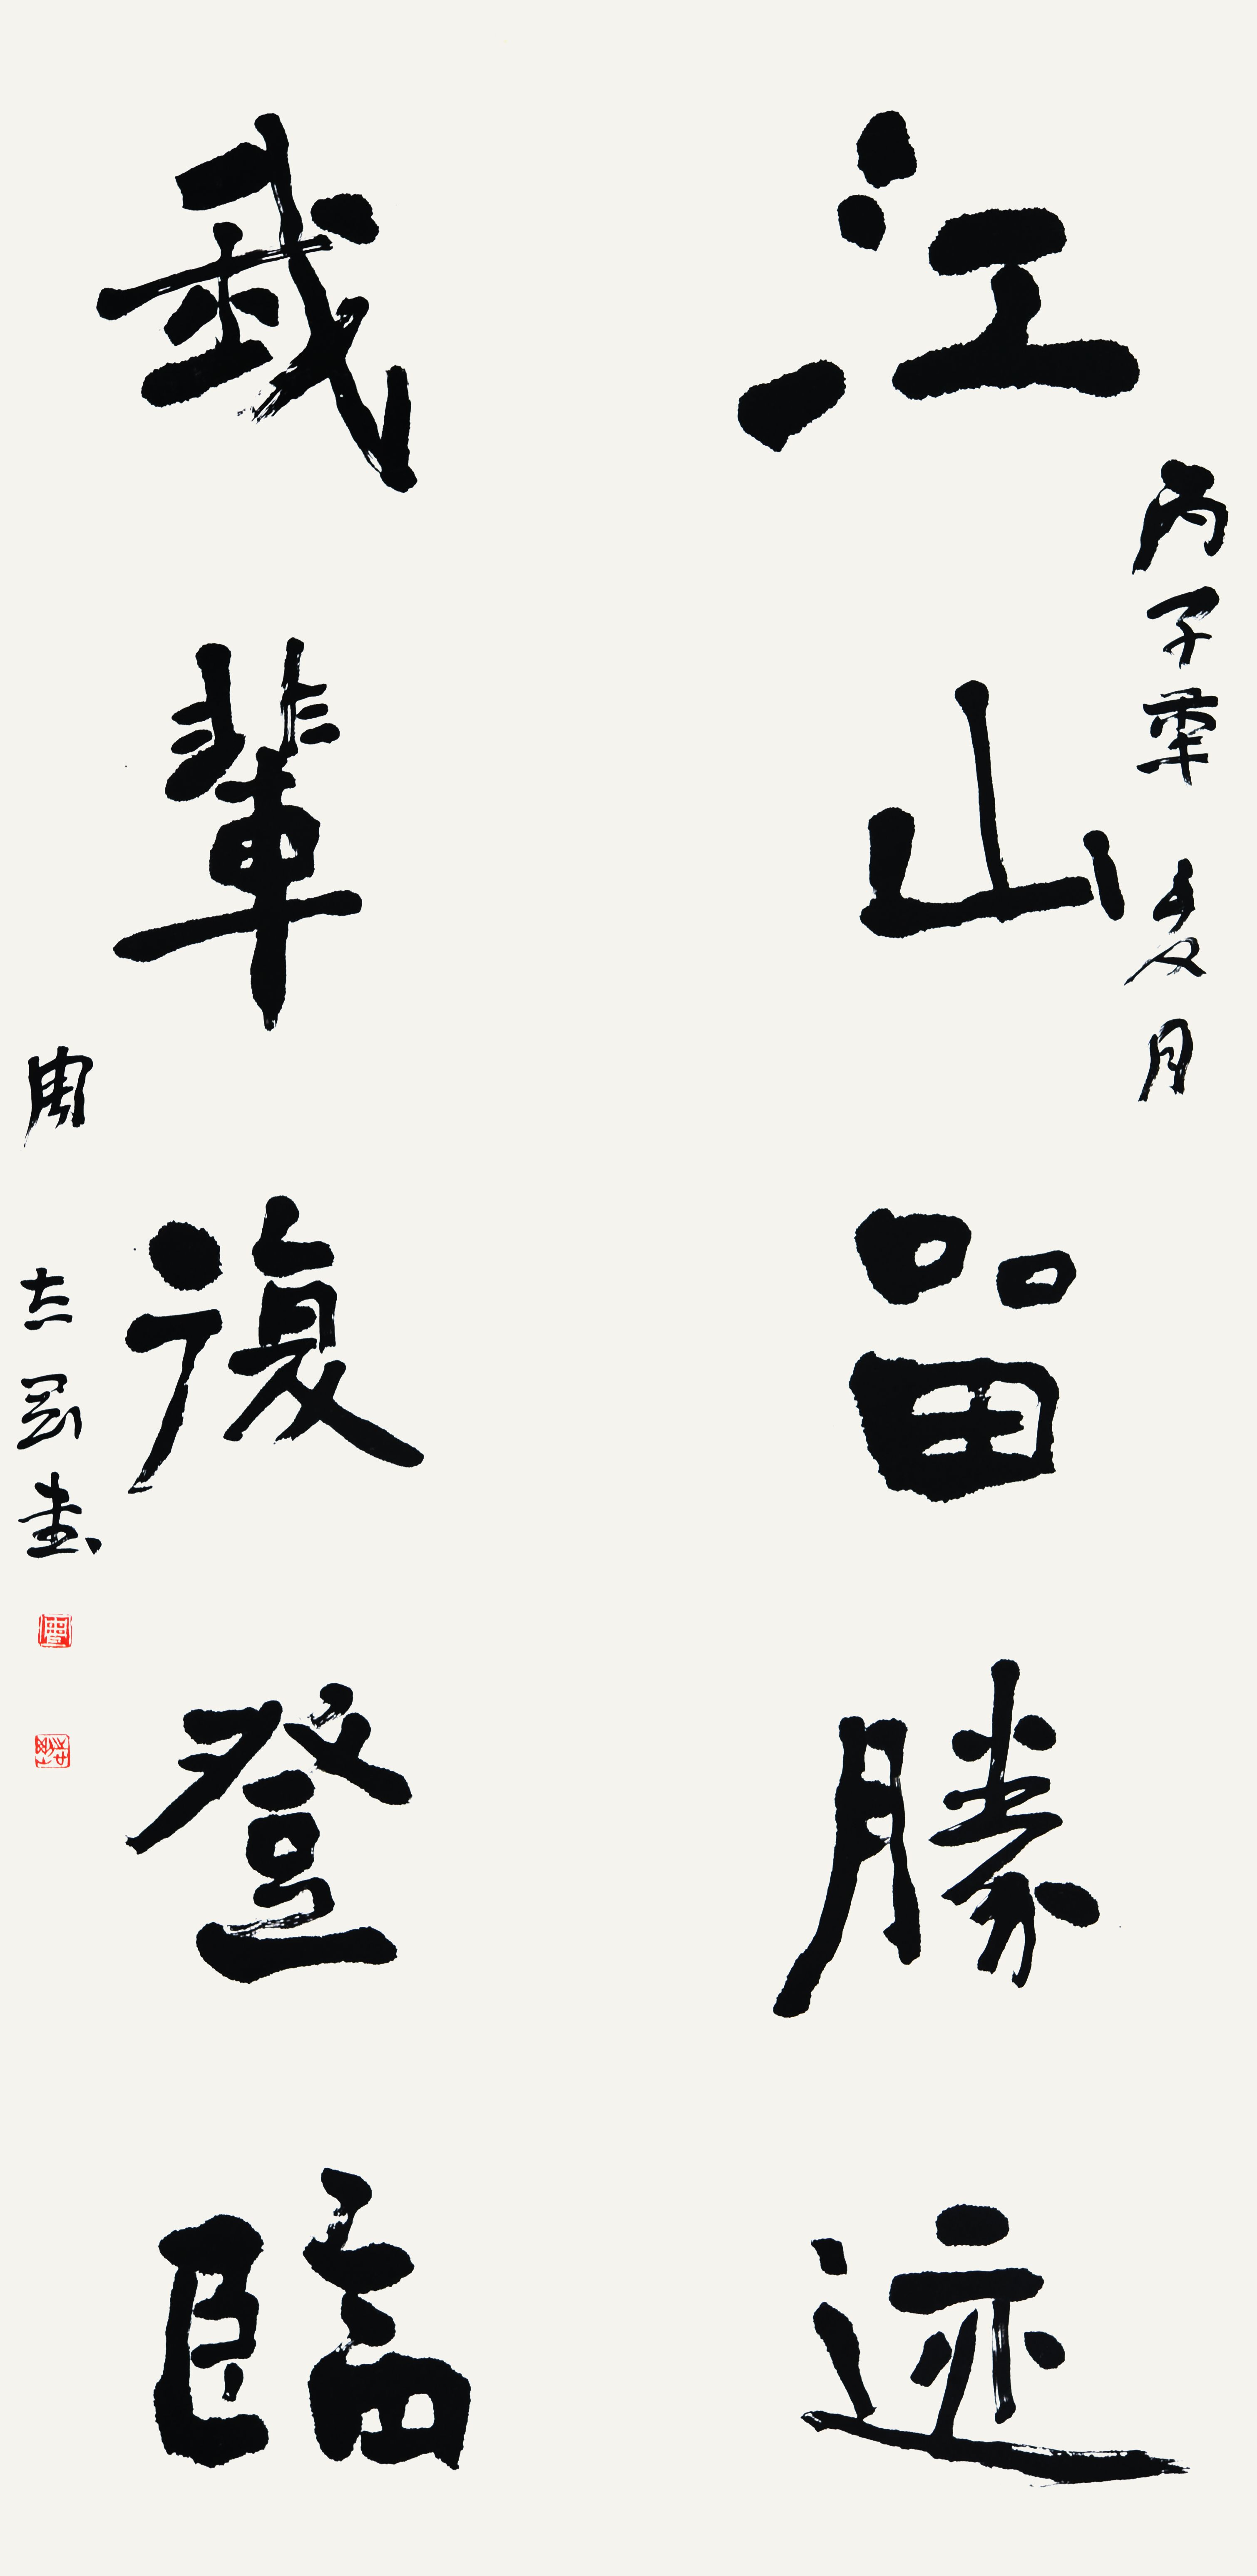 丙子夏月
江山留勝迹
我輩復登臨
周志高書